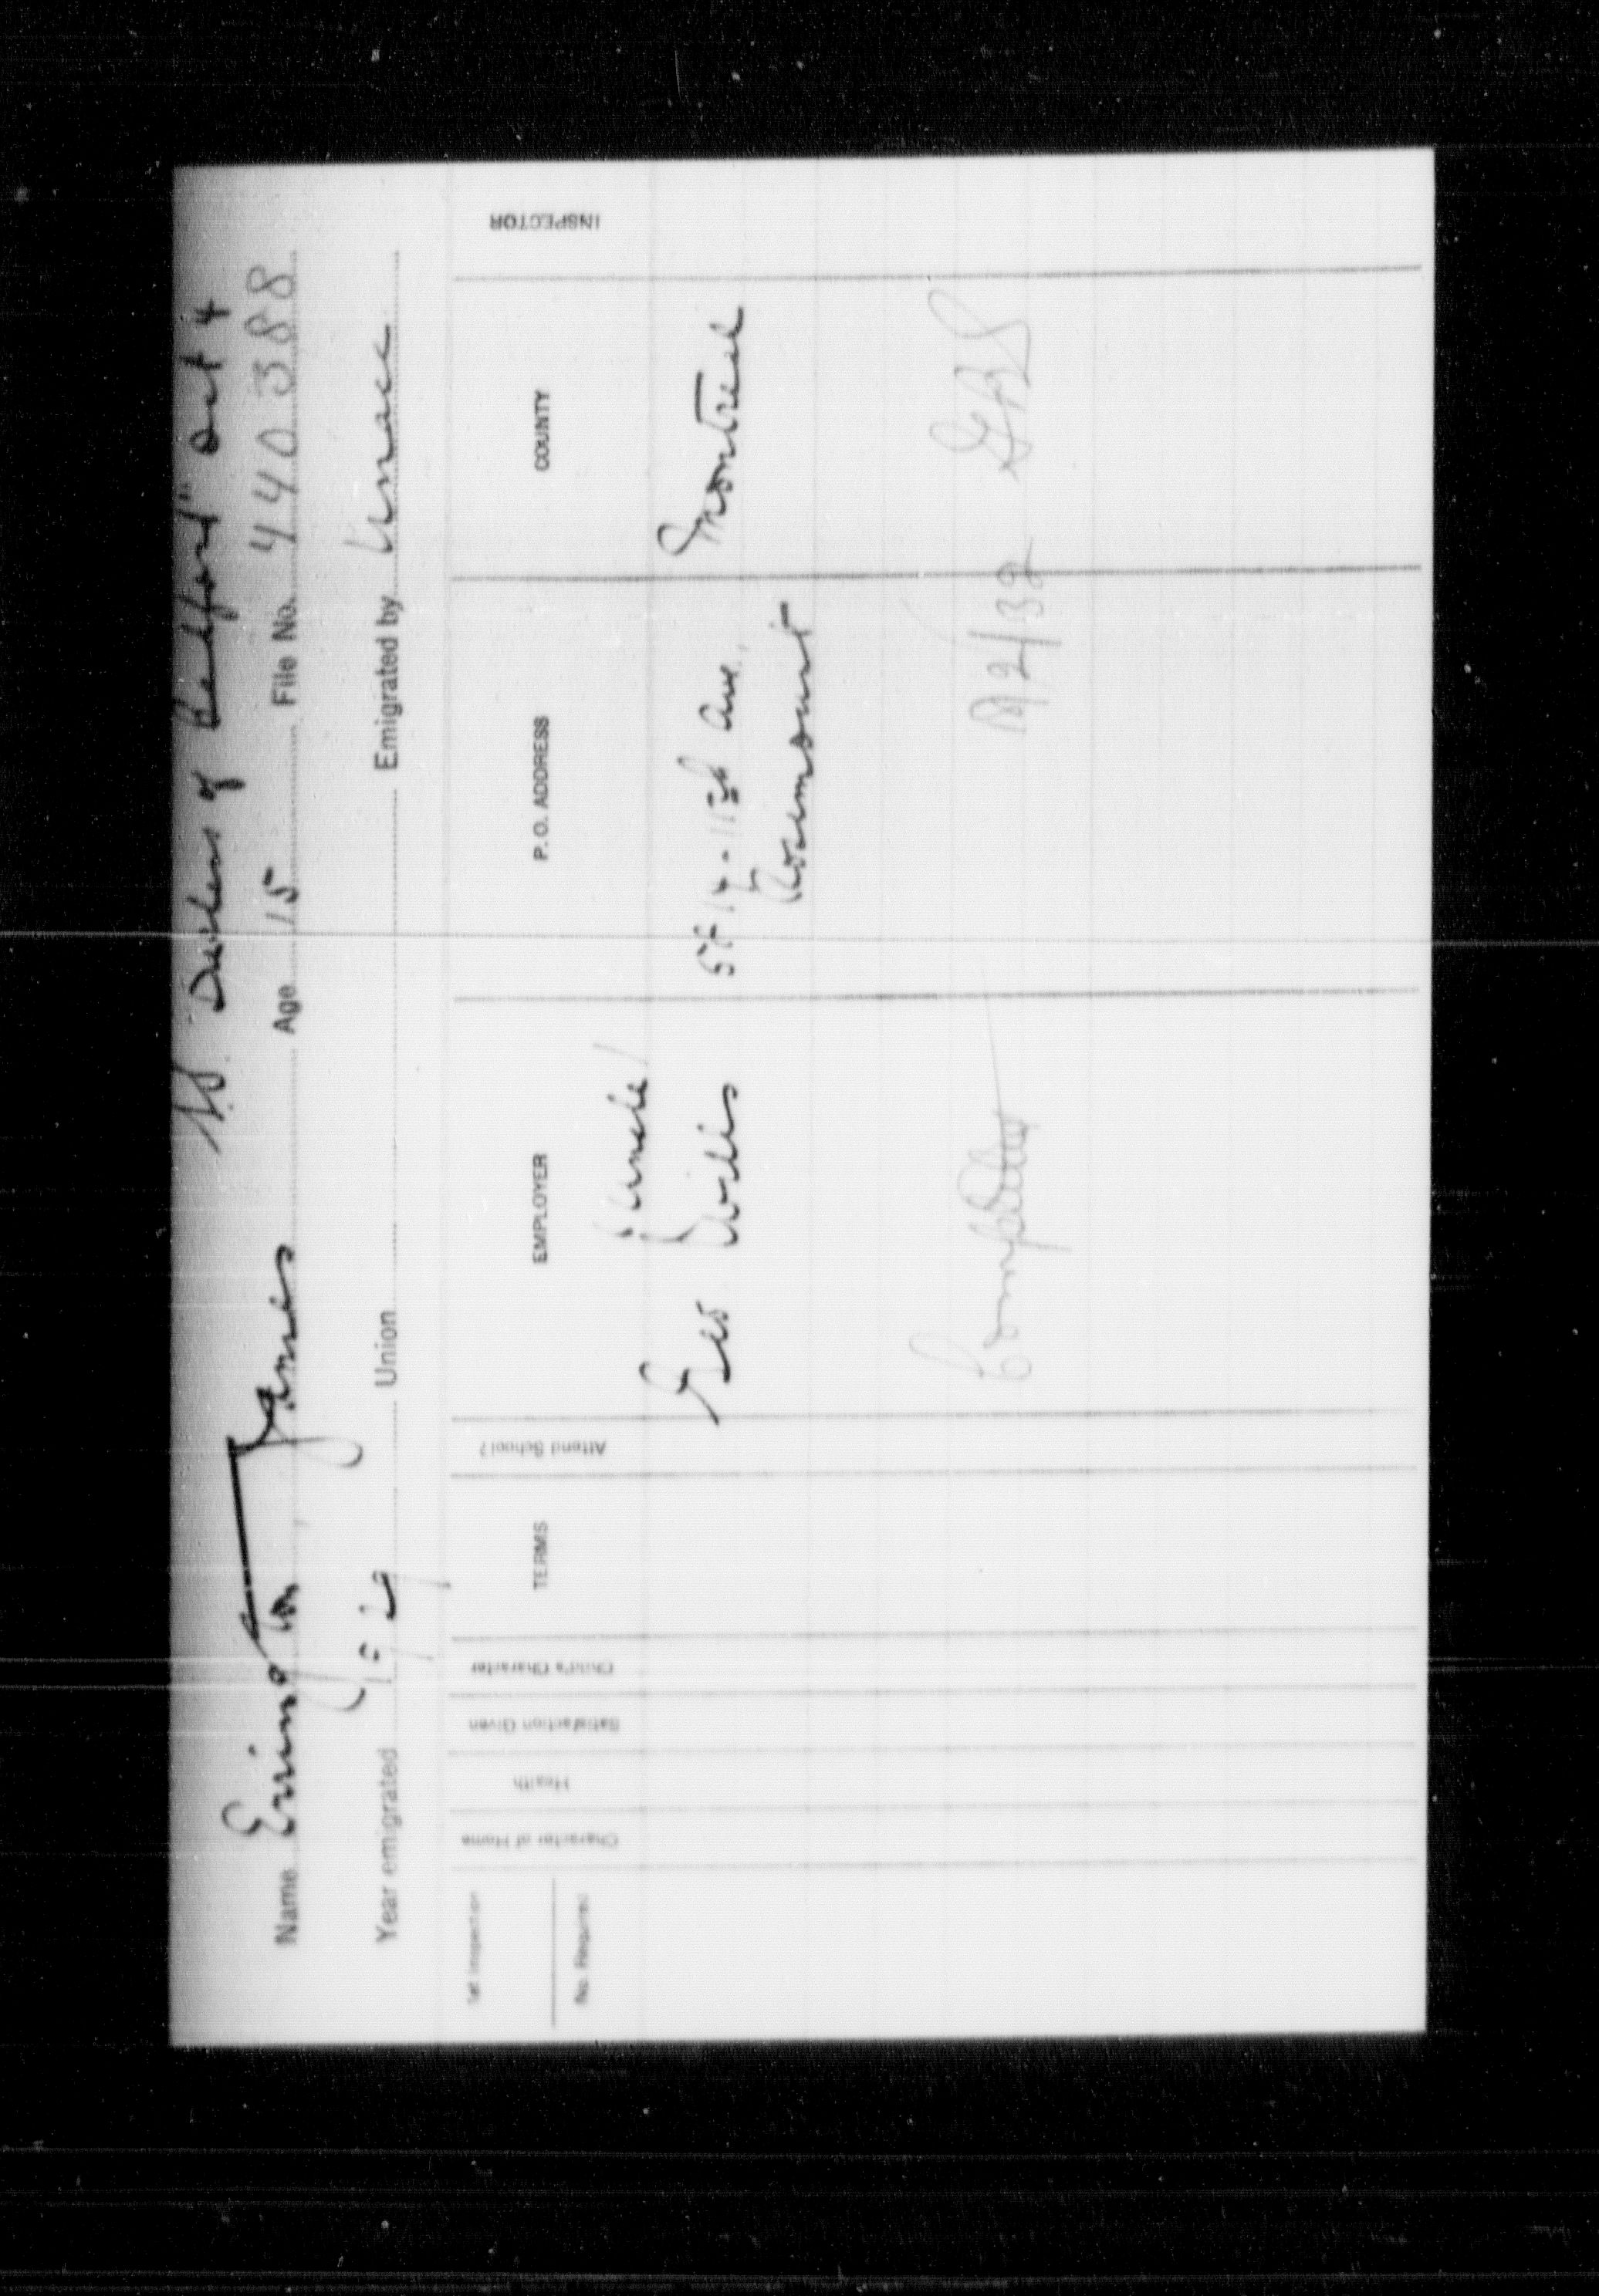 S.S. Duchess of Bedford" Oct 4
Name Errington, James Age 15 File No. 440388
Year emigrated 1929 Union Emigrated by Unacc
1st Inspection
No. Required
Character of Home
Health
Satisfaction Given
Child's Character
TERMS
Attend School?
EMPLOYER
P. O. ADDRESS
COUNTY
INSPECTOR
(Uncle)
Geo 11th Ave. Montreal
Rosemount
Completed